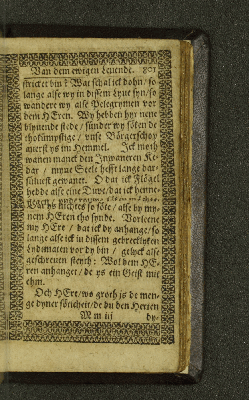 Van dem ewigen levende. 801
stricket bin? Wat schal ick dohn/ so
lange alse wy in dissem lyue syn/ so
wandere wy alse Pelegrymen vor
dem HEren. Wy hebben hyr nene
blyuende stede/ sünder wy söken de
thokümpstige/ vnse Börgerschop
auerst ys im Hemmel. Ick moth
wanen manck den Inwaneren Ke-
dar/ myne Seele hefft lange dar-
sülvest gewanet. O dat ick Flögel
hedde alse eine Duwe/ dat ick henne
dar ys nichtes so söte/ alse by my-
nem HEren tho synde. Vorleene
my HEre/ dat ick dy anhange/ so
lange alse ick in dissem gebrecklyken
lydtmaten vor dy bin/ gelyck alse
geschreuen steyth: Wol dem HE-
ren anhanget/ de ys ein Geist mit
ehm.
Och HEre/ wo groth is de men-
ge dyner söticheit/ de du den Heren
M m iii dy-